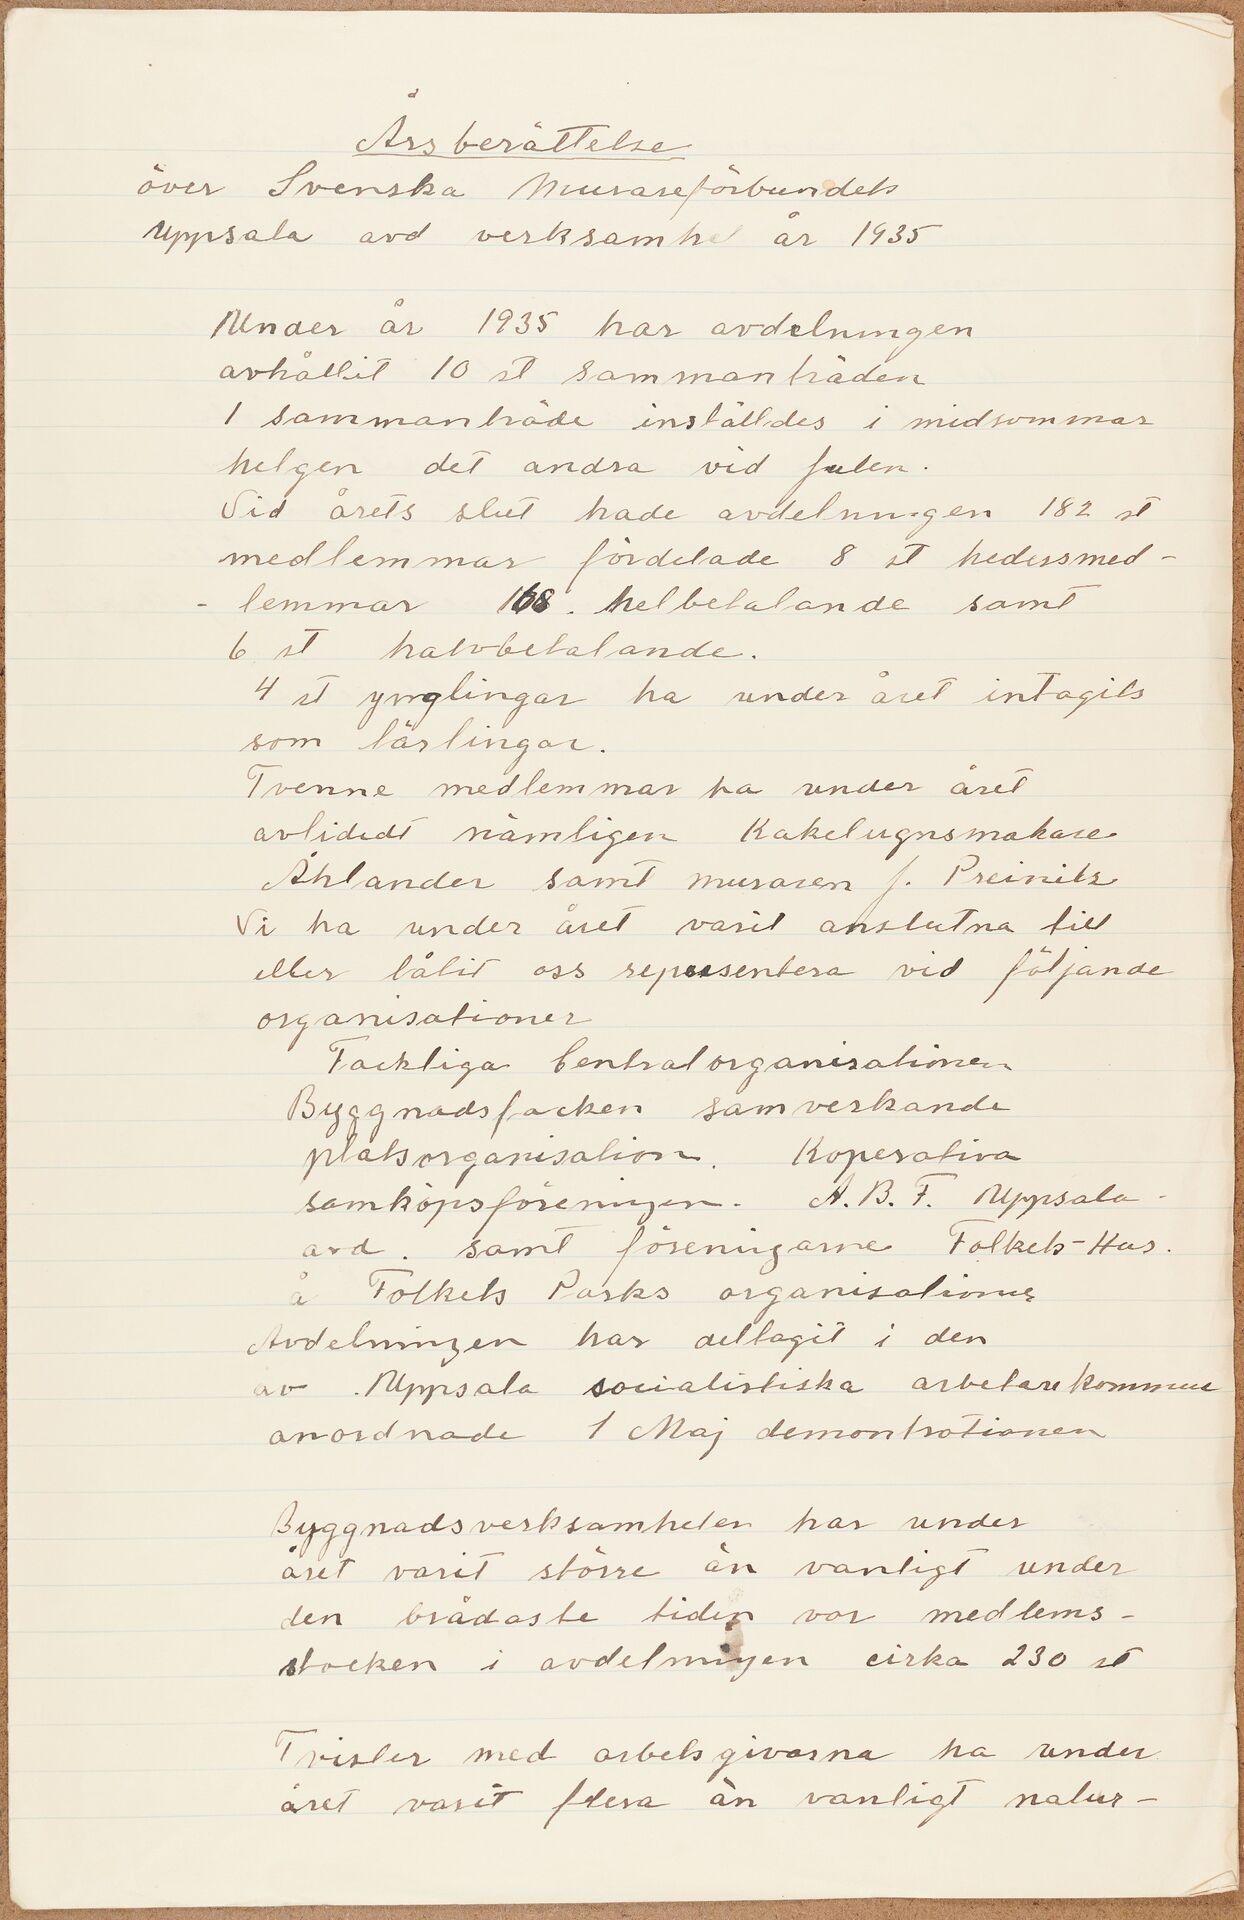 Årsberättelse
över Svenska Murareförbundets
Uppsala avd verksamhet år 1935
Under år 1935 har avdelningen
avhållit 10 st sammanträden
1 sammanträde inställdes i midsommar
helgen det andra vid julen.
Vid årets slut hade avdelningen 182 st
medlemmar fördelade 8 st hedersmed-
- lemmar 168. helbetalande samt
6 st halvbetalande.
4 st ynglingar ha under året intagits
som lärlingar.
Tvenne medlemmar ha under året
avlididt nämligen Kakelugnsmakare
Åhlander samt muraren J. Preinitz
Vi ha under året varit anslutna till
eller låtit oss representera vid följande
organisationer
Fackliga Centralorganisationen
Byggnadsfacken samverkande
platsorganisation. Koperativa
samköpsföreningen. A.B.F. Uppsala-
avd. samt föreningarne Folkets-Hus.
å Folkets Parks organisationer
Avdelningen har deltagit i den
av Uppsala socialistiska arbetarekommun
anordnade 1 Maj demontrationen
Byggnadsverksamheten har under
året varit större än vanligt under
den brådaste tiden var medlems-
stocken i avdelningen cirka 230 st
Tvister med arbetsgivarna ha under
året varit flera än vanligt natur-